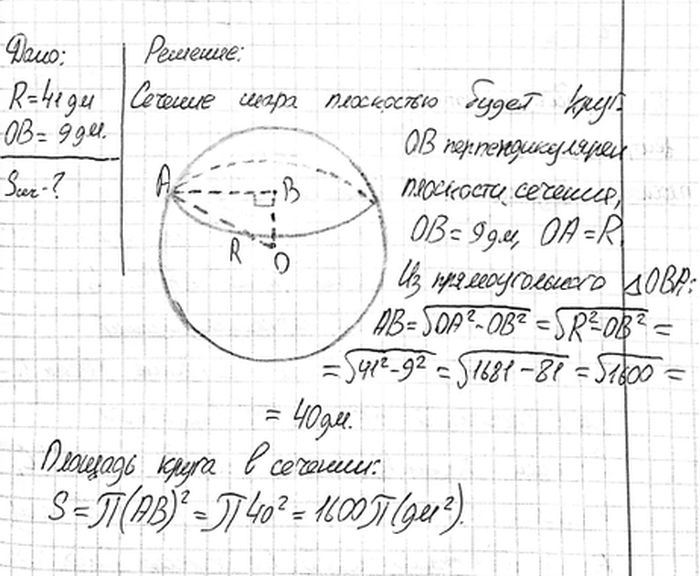 Дано:
R=41дм
OB=9дм.
Sсеч-?
Решение:
Сечение шара плоскостью будет круг.
OB перпендикулярен
плоскости сечения,
OB=9дм, OA=R.
Из прямоугольного △OBA:
AB=√OA²-OB² = √R²-OB² =
=√41²-9² = √1681-81 = √1600 =
= 40дм.
A
B
R
O
Площадь круга в сечении:
S=π(AB)²=π40²=1600π(дм²).